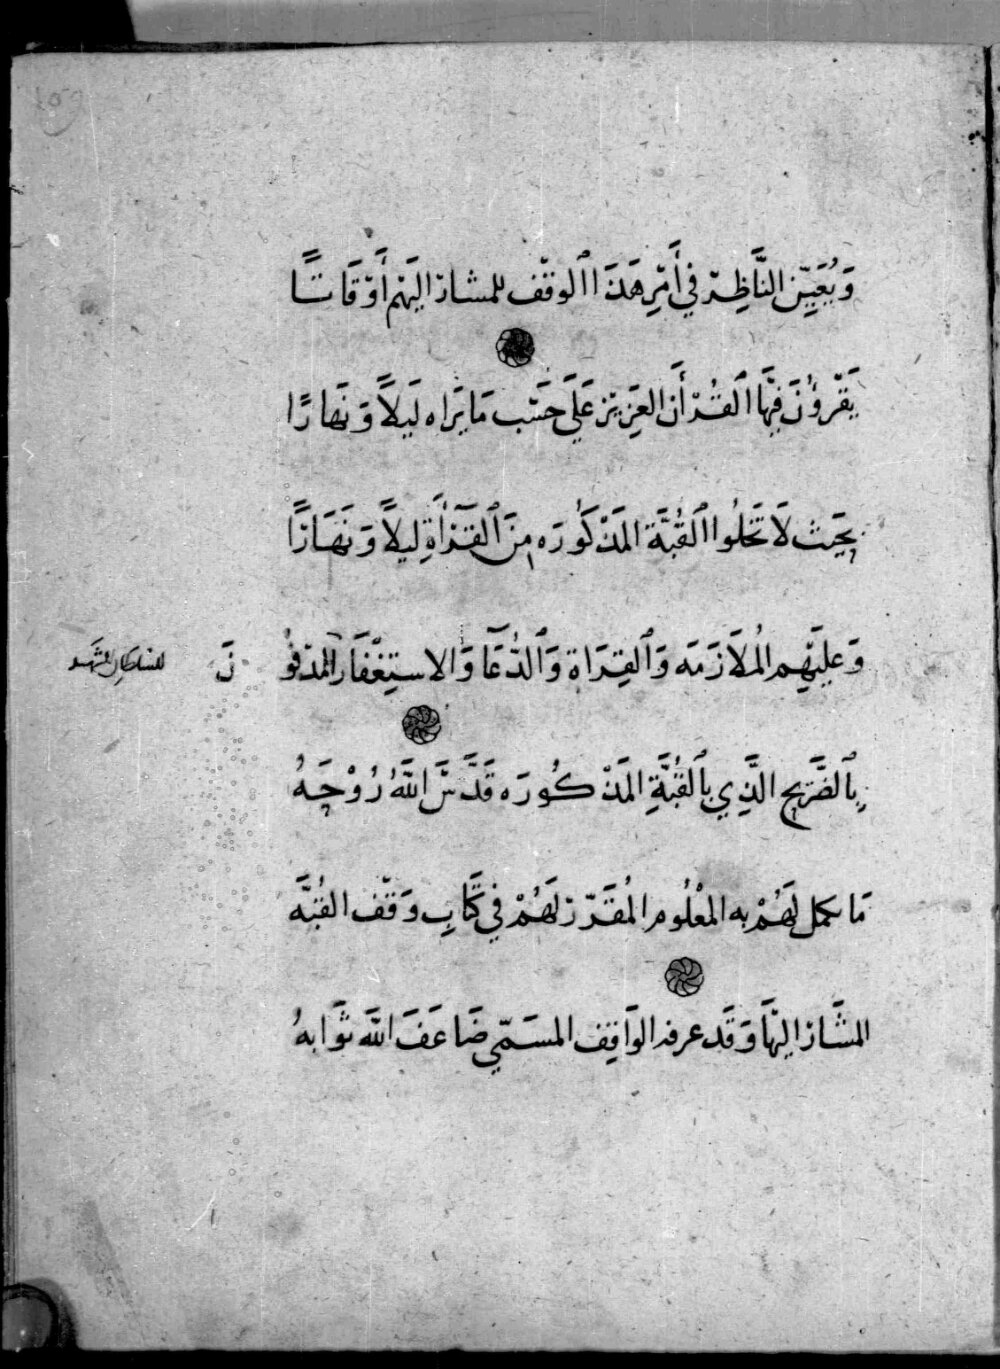 وَيُعَيِّن النَّاظِر في أَمْرِ هَذَا الوقْف للمشار اليْهِمْ أَوْقَاتًا
يَقْرؤُنَ فِيْهَا القُرْأَن العَزِيْز عَلَى حَسْب مَا يَرَاه لَيلاً وَنَهارًا
بحَيْث لَا تَخلُوا القُبَّة المَذْكُورَه مِنَ القِرْأَةِ ليلاً وَنَهَارًا
وَعليْهِم المُلاَزَمَه وَالقِرَاة وَالدُّعَا وَالاستِغْفَار للمدفُو نَ
بِالضَّرِيح الَّذِي بالقُبَّةِ المَذْكُورَه قَدَّسَ اللَّهُ رُوْحَهُ
مَا يحمل لَهُمْ به المعْلُوم المُقَرّر لَهُمْ في كِتَابِ وَقْف القُبَّه
المشَار اليْهَا وَقَد عرفه الوَاقِف المسَمّي ضَاعَفَ اللَّه ثَوَابهُ